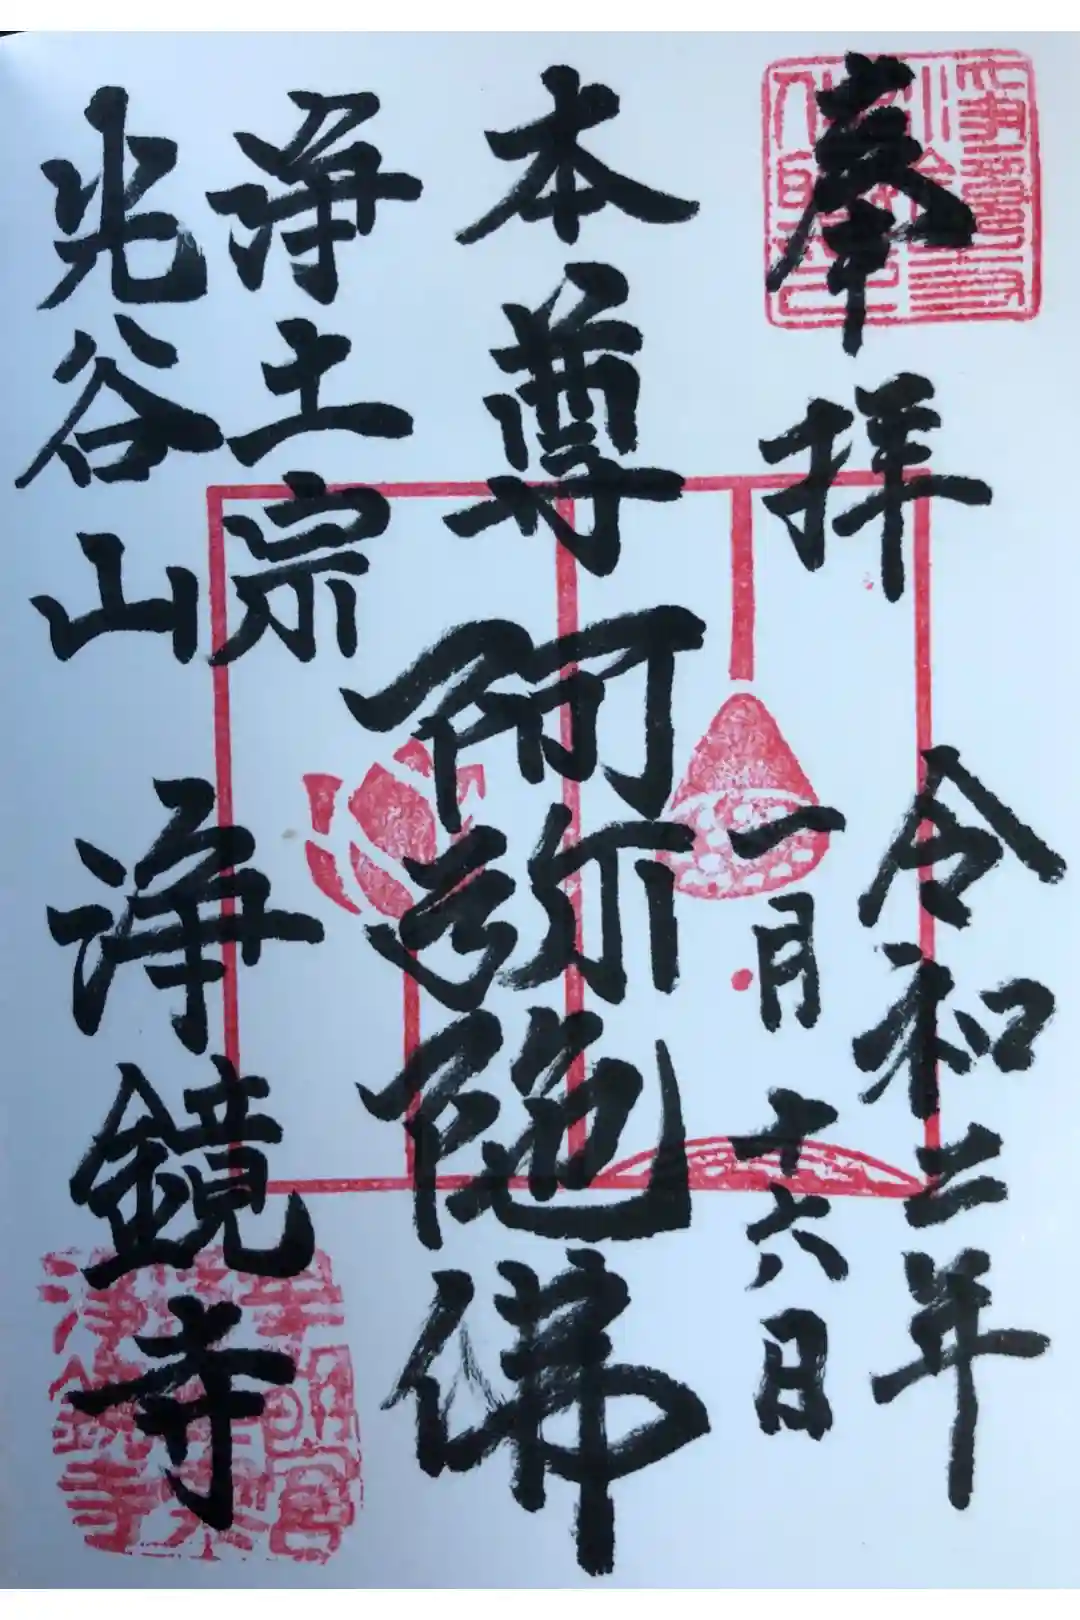 奉拝
令和二年
一月十六日
本尊阿弥陀佛
浄土宗
光谷山
浄鏡寺